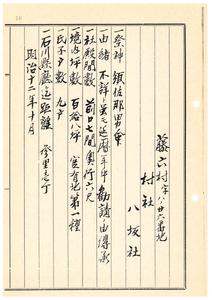 藤六村字八廿六番地
村社
八坂社
一祭神 須佐那男命
一由緒 不詳
一社殿間数 前口七間奥行六尺
一境内坪数 百拾八坪 官有地第一種
一氏子戸数 九戸
一石川県庁迄距離 壱里
明治十二年十月